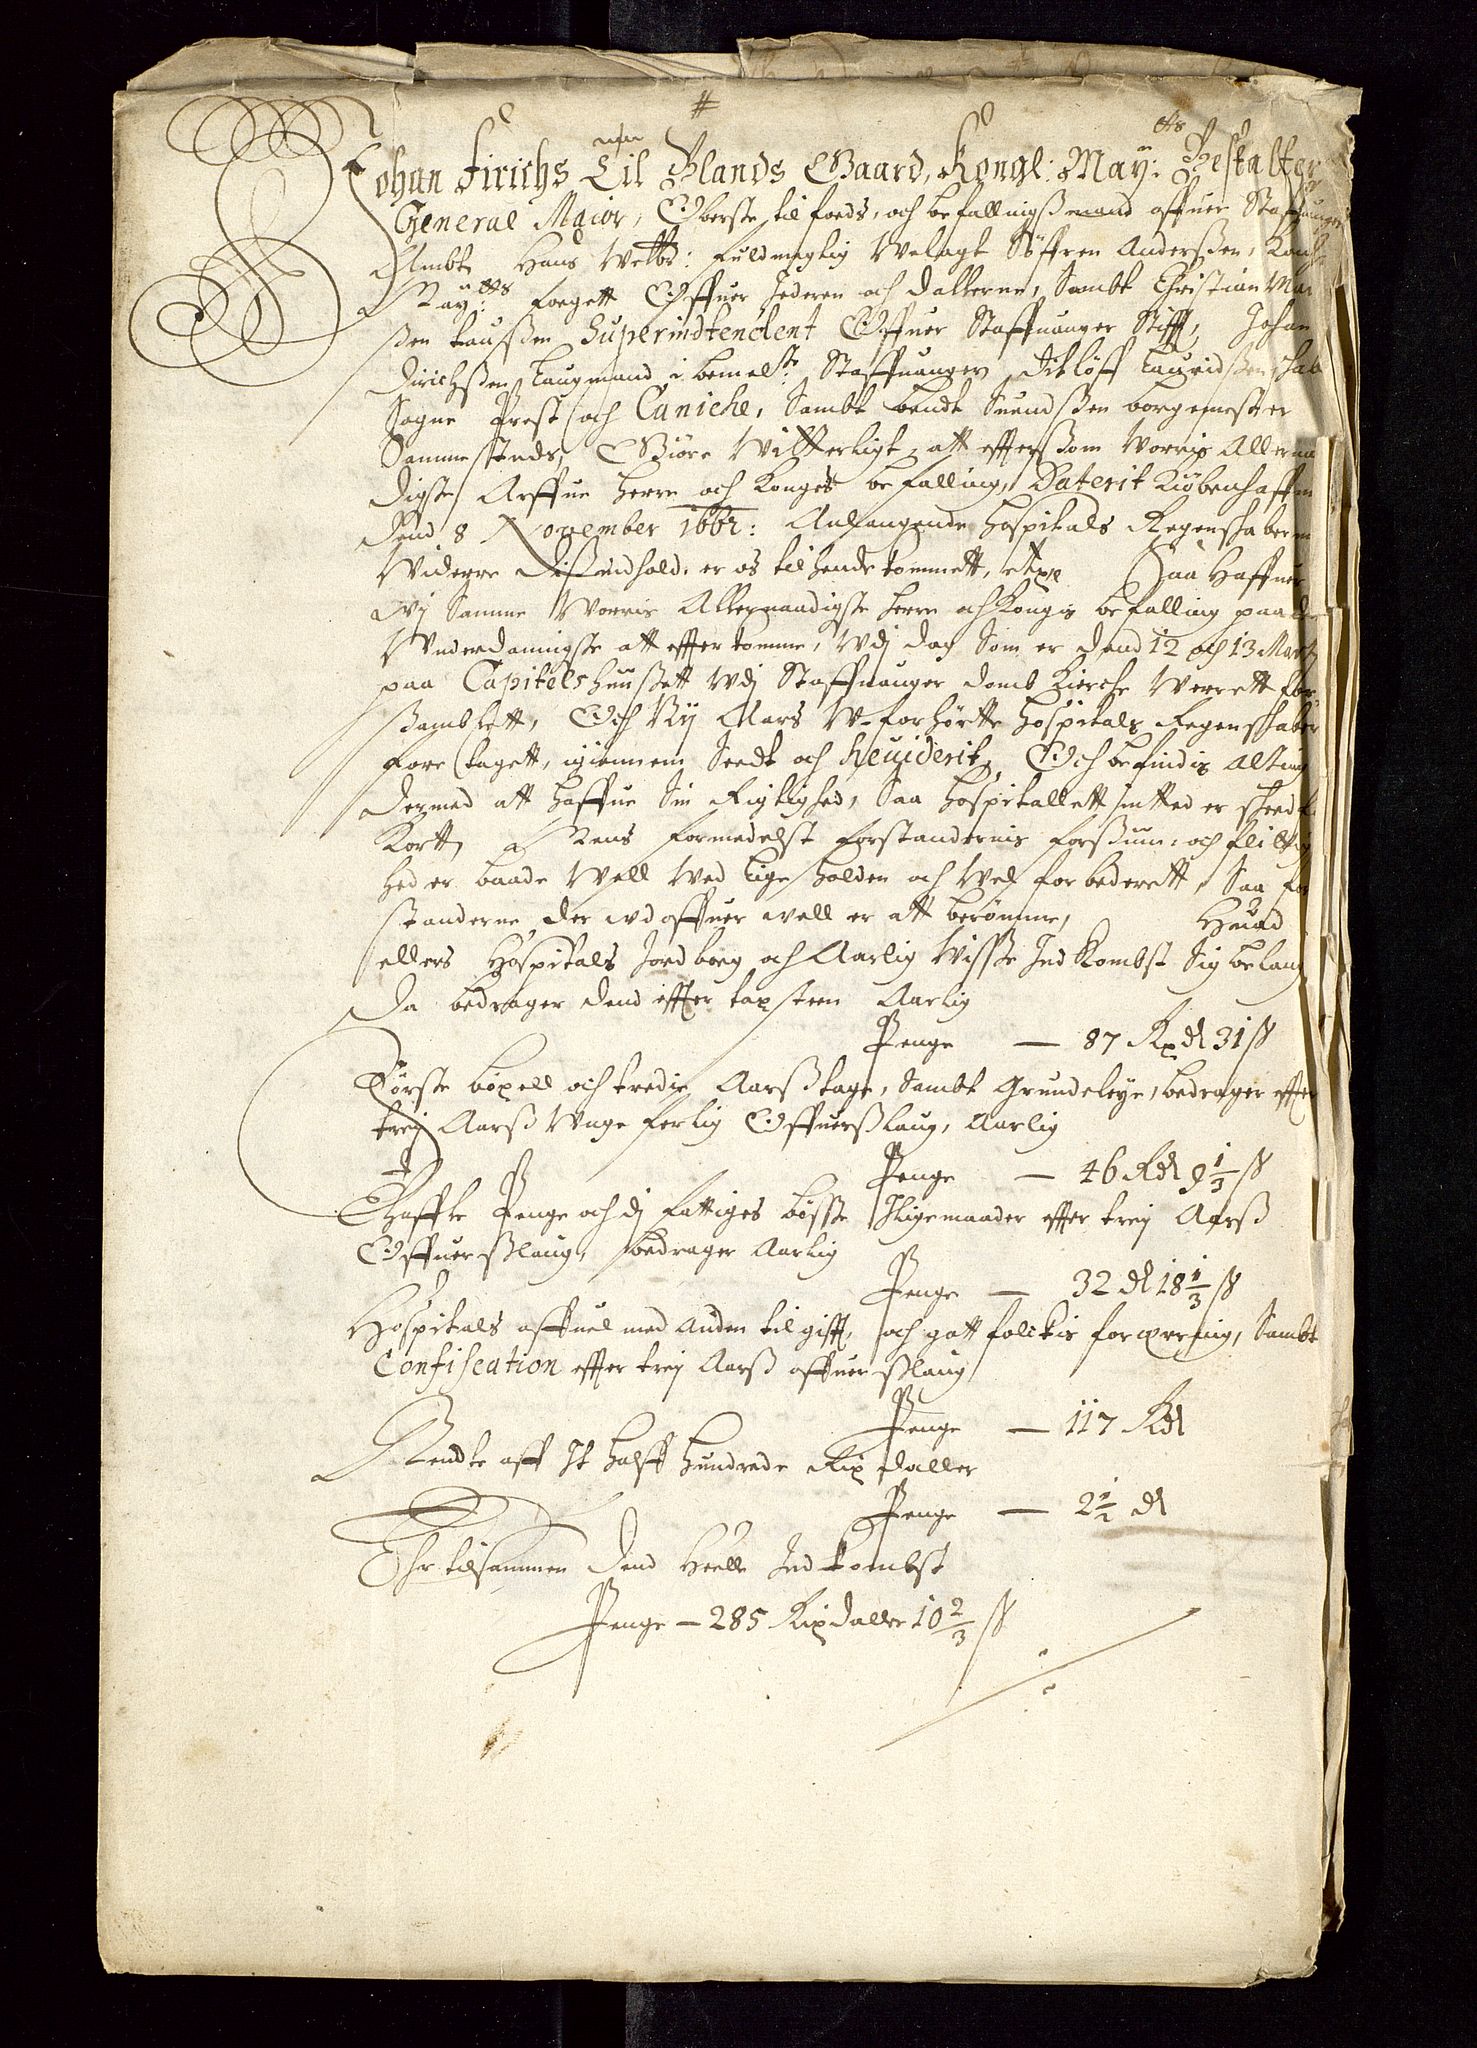 Johan Fririchs Til Ølands Gaard, Kongl: May: Bestalter
General Maior, Oberste til foeds, och befallingsmand offuer Staffuanger
Ambt, Hans Welbr: fuldmegtig Welagt Söffren Anderßen, Kongl
May:tts foegett Offuer Jederen och Dallerne, Sambt Christian Mad
ßen Taußen Superindtendent Offuer Staffuanger Stifft, Johan
Dirichßen Laugmand i bemelte Staffuanger, Ditlöff Lauridßen,
Sogne Prest och Caniche, Sambt Bendt Suendßen borgemester
Sammesteds, Giöre Witterligt, att efftersom Worris Allernaa
digste Arffue herre och Konges befalling, Daterit Kiöbenhaffn
dend 8 November 1662: Anlangende Hospitals Regenskaberne
Widerre dis indhold, er os tilhende kommett, etc. Saa Haffuer
wj Samme Worris Allernaadigste herre och Kongis befalling paa det
Wnderdanigste att effterkomme, Wdj dag Som er dend 12 och 13 Martj
paa Capitels huussett Wdj Staffuanger domb Kierche Werrett for
ßamblett, Och Nij Aars W-forhörte Hospitals Regenskaber
Fore tagett, igiennem Seedt och Reuiderit, Och befindis Alting
dermed att haffue Sin Rigtighed, Saa Hospitallett intted er skeed
Kortt, Mens formedelst forstandernis forßun: och flittig
hed er baade Well Wed lige holden och Wel forbederett, Saa for
standerne der wdoffuer well er att berömme, Huad
ellers Hospitals Jordbog och Aarlig Wisse Indkombst Sig belang
Da bedrager dend effter taxsten Aarlig
Penge — 87 Rxdl 31 ß
Förste böxell och tredie Aarßtage, Sambt Grundeleye, bedrager effter
trej Aarß Wuge ferlig Offuerßlaug, Aarlig
Penge — 46 Rdl 9 1/3 ß
Thaffle Penge och dj fattiges bösse Jligemaader effter trej Aarß
Offuerßlaug, bedrager Aarlig
Penge — 32 dl 18 1/3 ß
Hospitals affuel med Anden tilgifft, och gott folckis forærring, Sambt
Confiscation effter trej Aarß offuerßlaug
Penge — 117 Rdl
Rendte aff It halff hundrede Rix daller
Penge — 2 1/2 dl
Ehr tilsammen dend Heelle Indkombst
Penge — 285 Rixdaller 10 2/3 ß